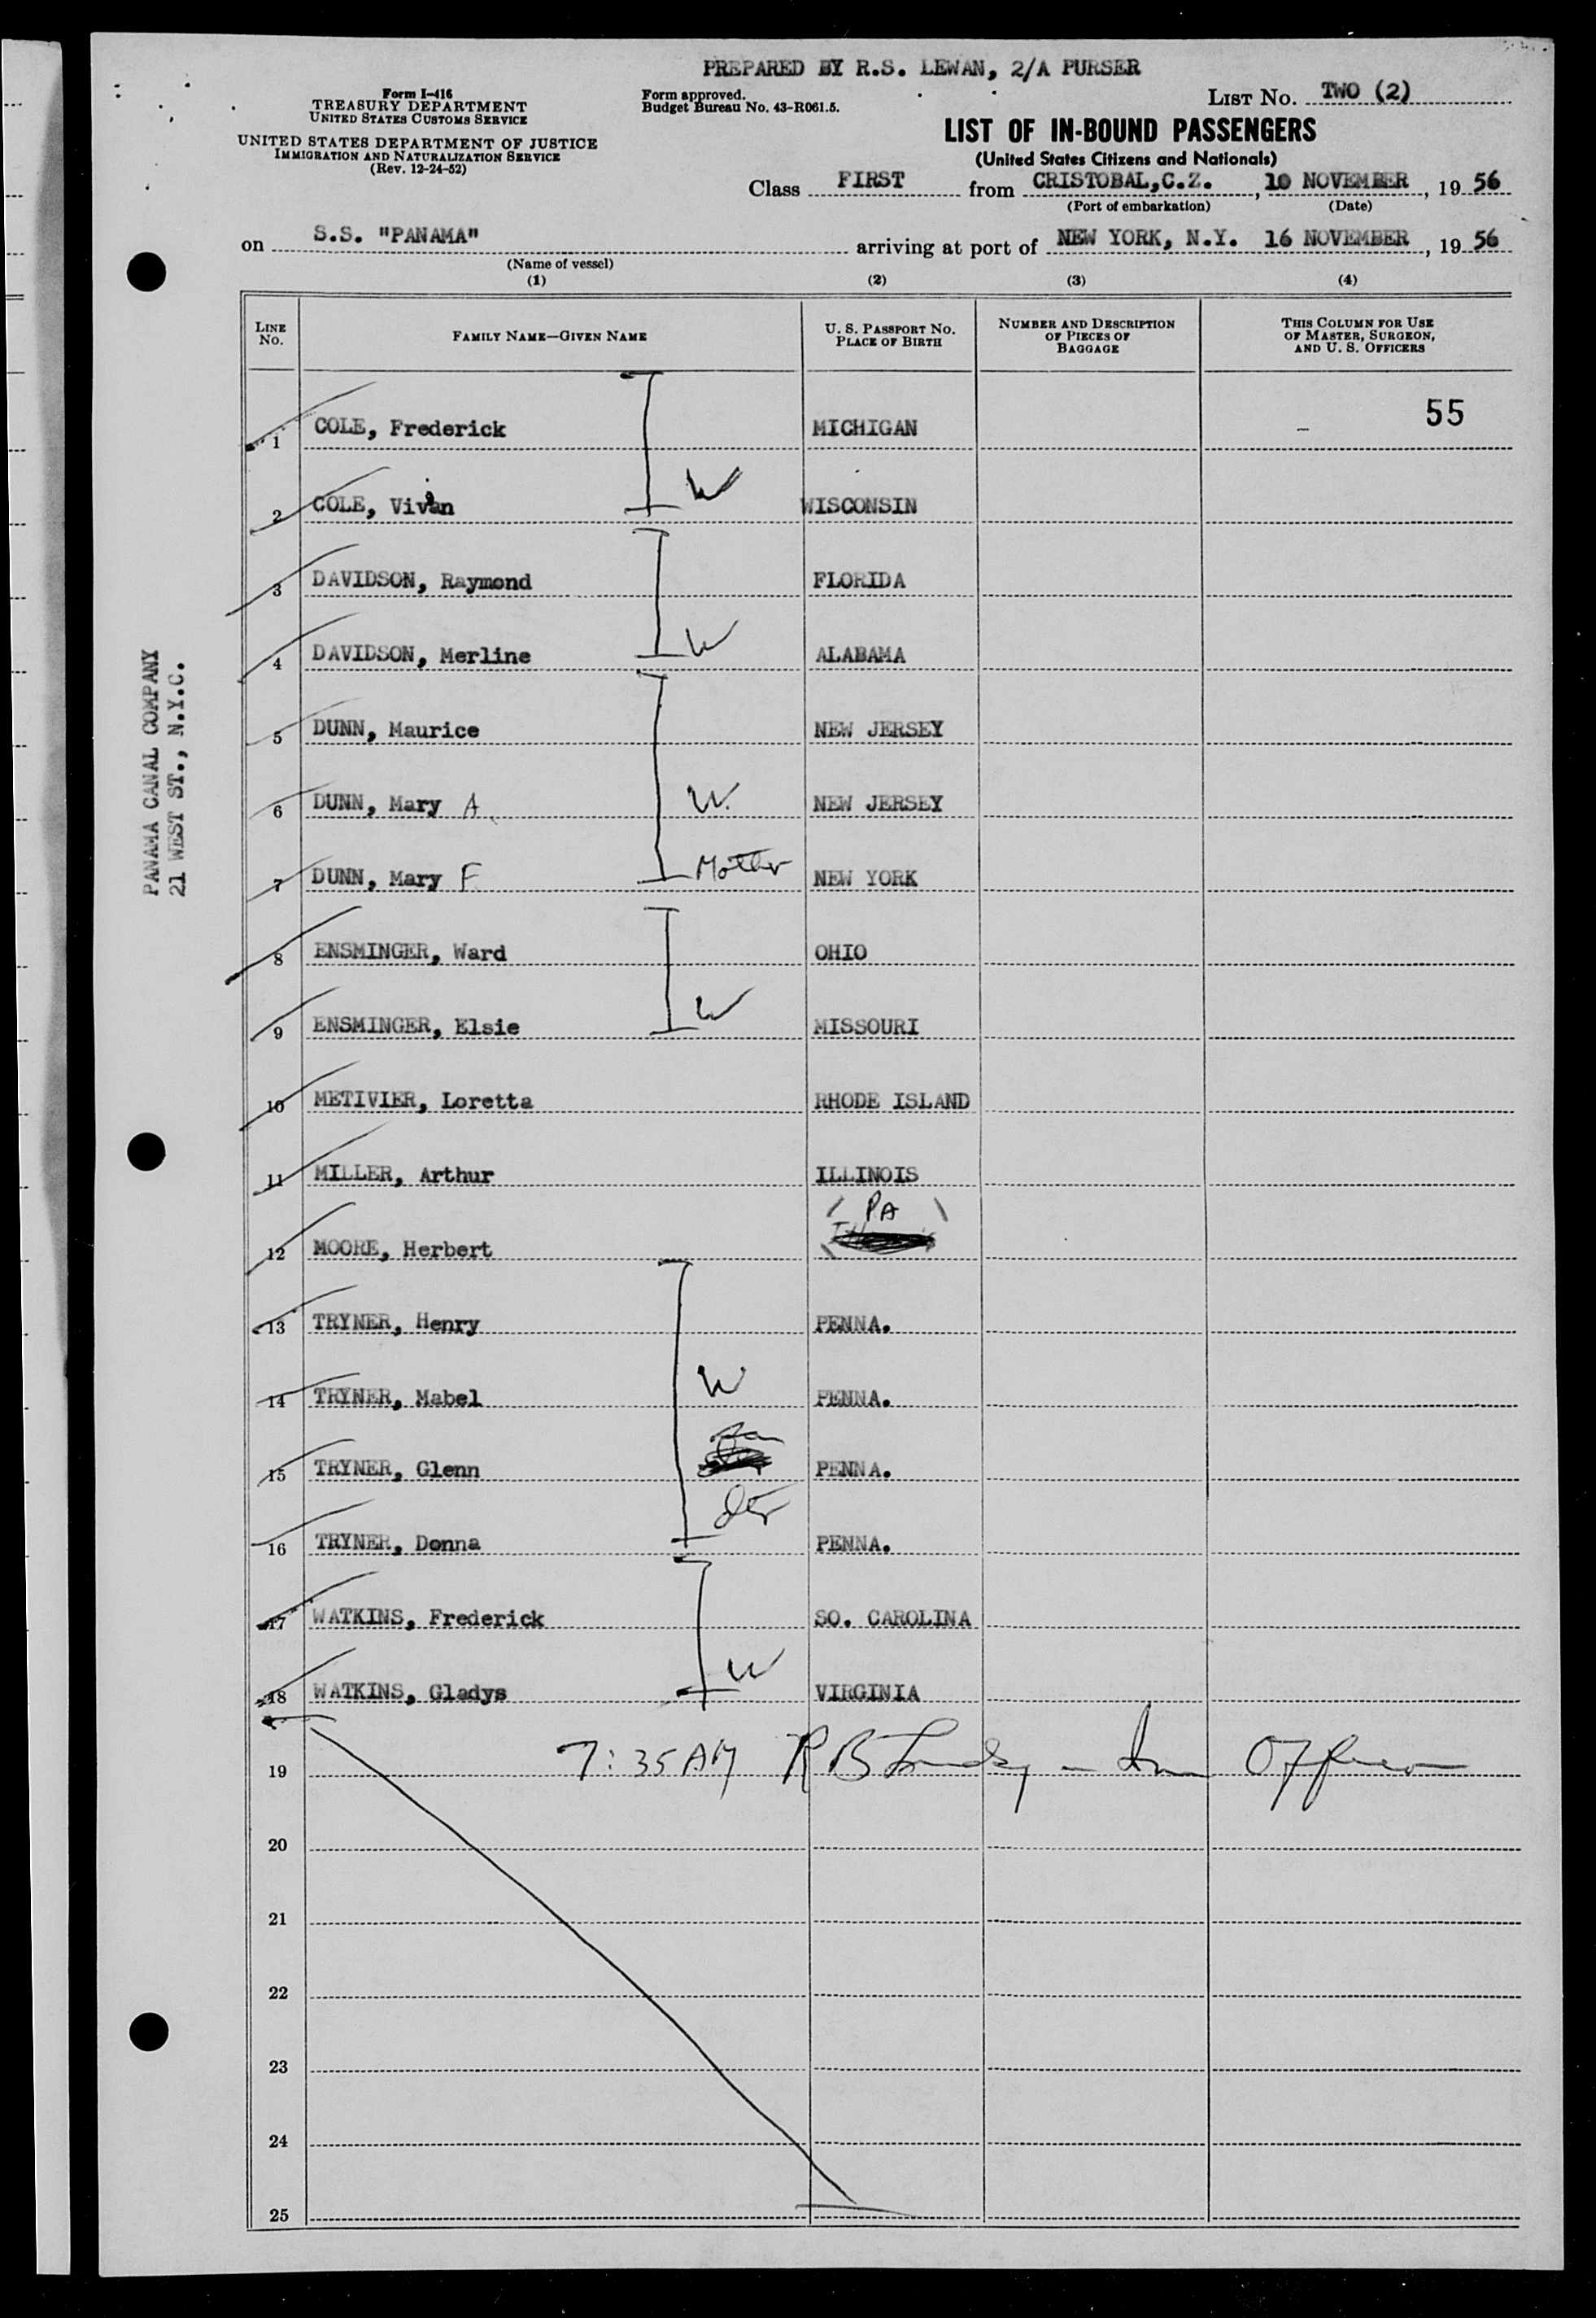 PREPARED BY R.S. LEWAN, 2/A PURSER
Form I-416
TREASURY DEPARTMENT
UNITED STATES CUSTOMS SERVICE
UNITED STATES DEPARTMENT OF JUSTICE
IMMIGRATION AND NATURALIZATION SERVICE
(Rev. 12-24-52)
Form approved.
Budget Bureau No. 43-R061.5.
LIST NO. TWO (2)
LIST OF IN-BOUND PASSENGERS
(United States Citizens and Nationals)
Class FIRST from CRISTOBAL,C.Z. , 10 NOVEMBER , 19 56
(Port of embarkation) (Date)
on S.S. "PANAMA" arriving at port of NEW YORK, N.Y. 16 NOVEMBER , 19 56
(Name of vessel)
(1) (2) (3) (4)
LINE NO. FAMILY NAME—GIVEN NAME U. S. PASSPORT NO. PLACE OF BIRTH NUMBER AND DESCRIPTION OF PIECES OF BAGGAGE THIS COLUMN FOR USE OF MASTER, SURGEON, AND U. S. OFFICERS
55
1 COLE, Frederick MICHIGAN
2 COLE, Vivan W WISCONSIN
3 DAVIDSON, Raymond FLORIDA
4 DAVIDSON, Merline W ALABAMA
5 DUNN, Maurice NEW JERSEY
6 DUNN, Mary A. W. NEW JERSEY
7 DUNN, Mary F. Mother NEW YORK
8 ENSMINGER, Ward OHIO
9 ENSMINGER, Elsie W MISSOURI
10 METIVIER, Loretta RHODE ISLAND
11 MILLER, Arthur ILLINOIS
12 MOORE, Herbert PA
13 TRYNER, Henry PENNA.
14 TRYNER, Mabel W PENNA.
15 TRYNER, Glenn PENNA.
16 TRYNER, Donna PENNA.
17 WATKINS, Frederick SO. CAROLINA
18 WATKINS, Gladys W VIRGINIA
19 7:35 AM R B
20
21
22
23
24
25
PANAMA CANAL COMPANY
21 WEST ST., N.Y.C.